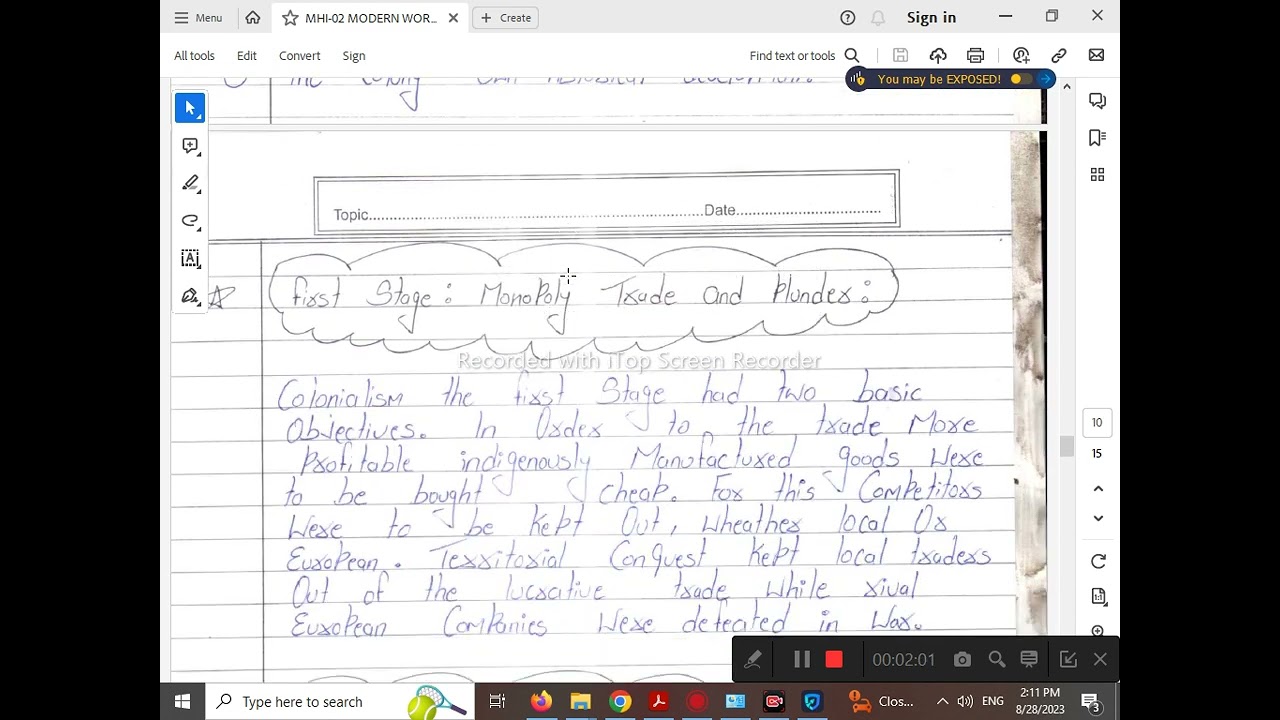 Menu
MHI-02 MODERN WOR...
Create
Sign in
All tools
Edit
Convert
Sign
Find text or tools
You may be EXPOSED!
Topic
Date
First Stage: Monopoly Trade and Plunder:
Recorded with iTop Screen Recorder
Colonialism the first Stage had two basic
Objectives. In Order to the trade More
Profitable indigenously Manufactured goods Were
to be bought cheap. For this Competitors
Were to be Kept Out, wheather local Or
European. Territorial Conquest Kept local traders
Out of the lucrative trade while rival
European Companies Were defeated in War.
10
15
1:1
00:02:01
Type here to search
Clos...
ENG
2:11 PM
8/28/2023
3